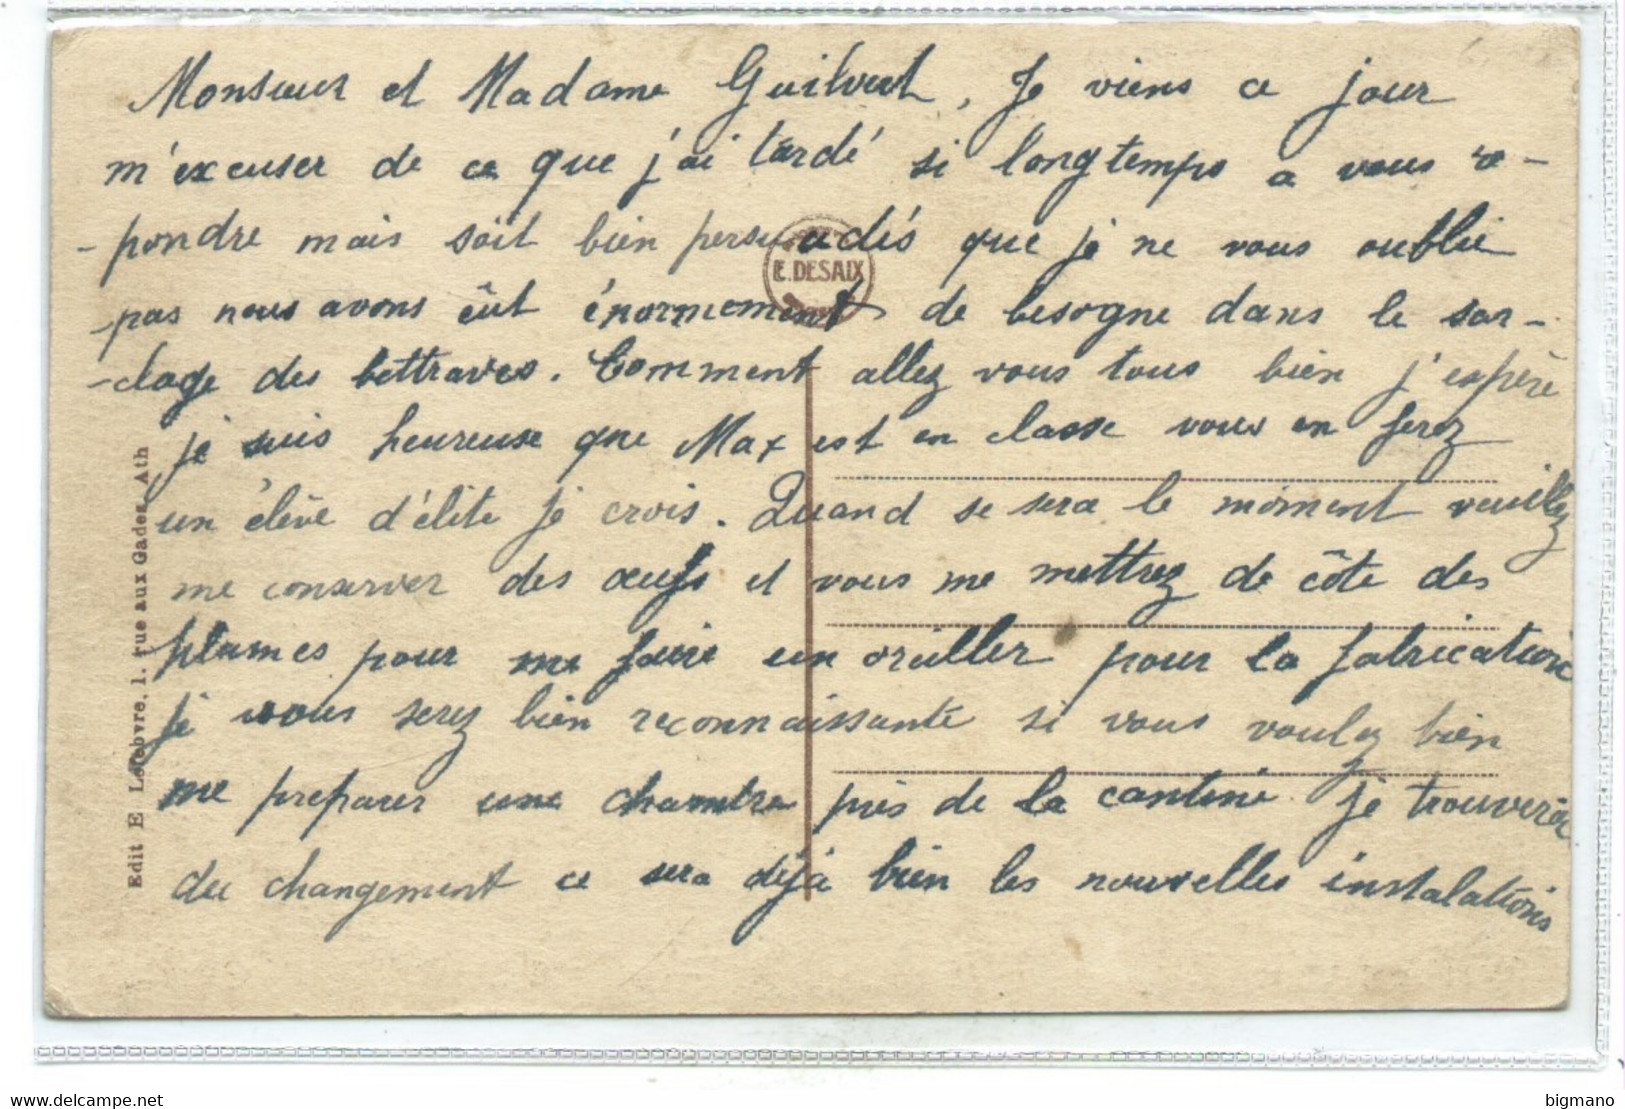 Monsieur et Madame Guilvert, Je viens ce jour
m'excuser de ce que j'ai tardé si longtemps a vous re-
-pondre mais soit bien persuadés que je ne vous oublie
-pas nous avons êut énormement de besogne dans le sar-
-clage des bettraves. Comment allez vous tous bien j'espère
je suis heureuse que Max est en classe vous en ferez
un élève d'élite je crois. Quand se sera le moment veuillez
me conserver des œufs et vous me mettrez de côte des
plumes pour me faire un oreiller pour la fabrication
je vous serez bien reconnaissante si vous voulez bien
me preparer une chambre près de la cantine je trouverai
du changement ce sera déjà bien les nouvelles instalations
E. DESAIX
Edit E Lefebvre, 1. rue aux Gades Ath
bigmano